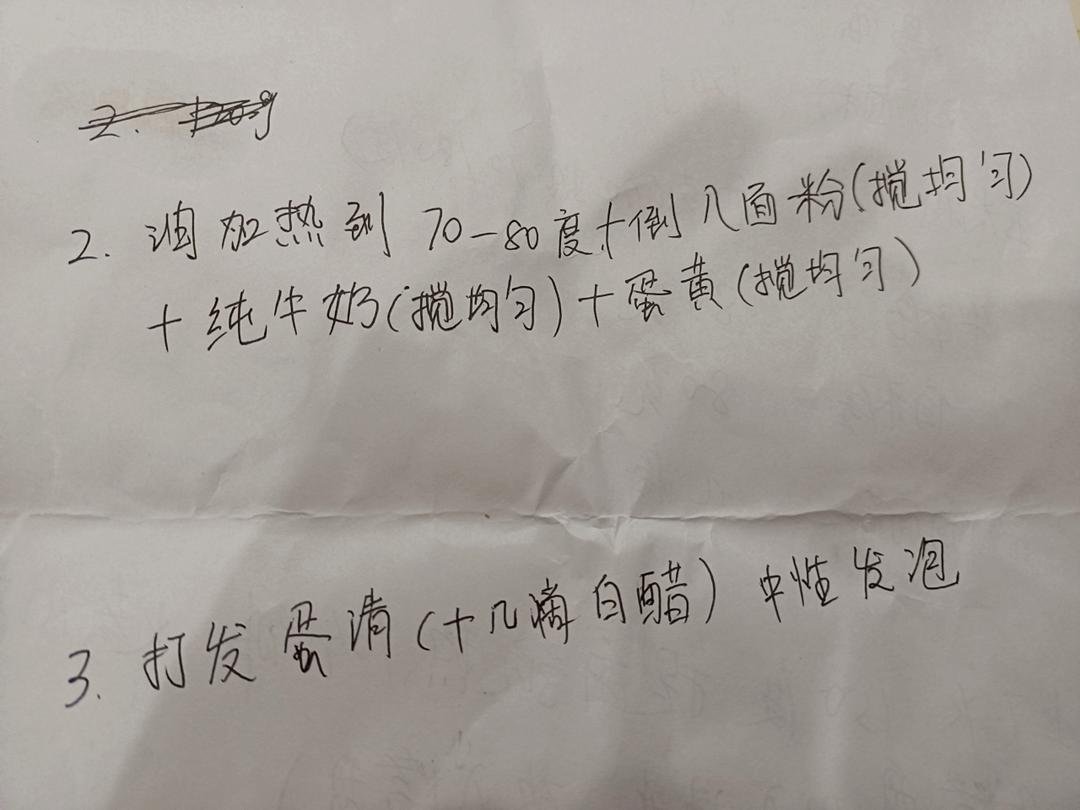 2. 油加热到 70-80度,+倒入面粉(搅均匀)
+ 纯牛奶(搅均匀)+蛋黄(搅均匀)
3. 打发蛋清(+几滴白醋) 中性发泡